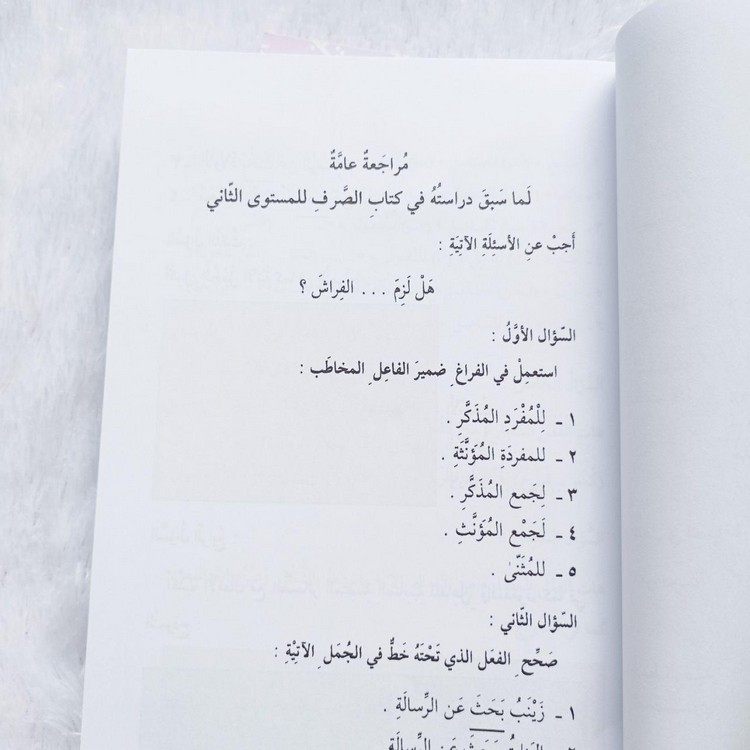 مُراجَعةٌ عامَّةٌ
لَما سَبقَ دراستُهُ في كتابِ الصَّرفِ للمستوى الثّاني
أَجبْ عنِ الأسئلَةِ الآتِيَةِ :
هَلْ لَزِمَ . . . الفِراشَ ؟
السّؤال الأوَّلُ :
استعمِلْ في الفراغِ ضميرَ الفاعِلِ المخاطَب :
١ ـ لِلْمُفْرَدِ المُذَكَّرِ .
٢ ـ للمفردَةِ المُؤنَّثَةِ .
٣ ـ لِجَمع المُذَكَّرِ .
٤ ـ لَجَمْع المُؤَنَّثِ .
٥ ـ للمُثَنّىٰ .
السّؤال الثّاني :
صَحِّحِ الفعَل الذي تَحْتَهُ خَطٌّ في الجُمَلِ الآتِيْةِ :
١ ـ زَيْنَبُ بَحَثَ عَن الرِّسالَةِ .
عَن الرِّسالَةِ